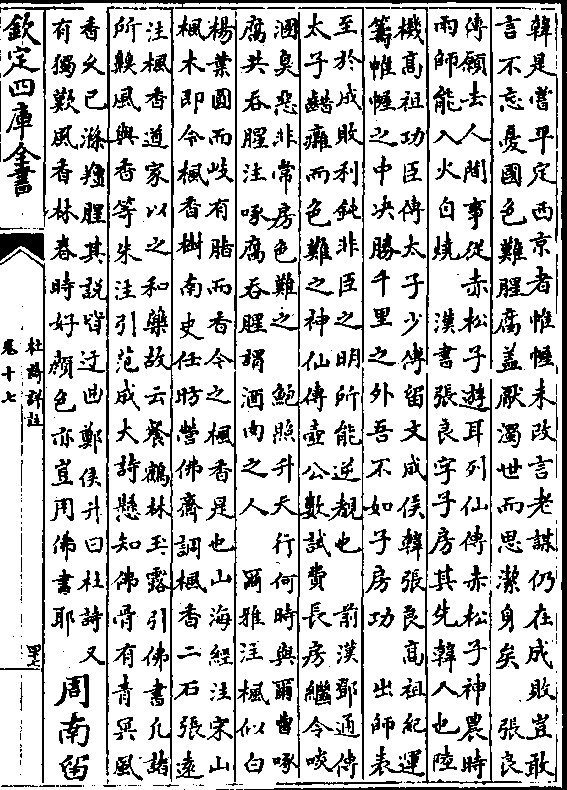 韓是嘗平定西京者惟幄未改言老謀仍在成敗豈敢
言不忘憂國色難腥腐蓋厭濁世而思潔身矣 張良
傳願去人間事從赤松子遊耳列仙傳赤松子神農時
雨師能入火自燒 漢書張良字子房其先韓人也陸
機高祖功臣傳太子少傅留文成侯韓張良高祖紀運
籌帷幄之中决勝千里之外吾不如子房功 出師表
至於成敗利鈍非臣之明所能逆覩也 前漢鄧通傳
太子齰癰而色難之神仙傳壺公數試費長房繼令啖
溷臭惡非常房色難之 鮑照升天行何時與爾曹啄
腐共吞腥注啄腐吞腥謂酒肉之人 爾雅注楓似白
楊葉圓而岐有脂而香今之楓香是也山海經注宋山
楓木即今楓香樹南史任昉營佛齋調楓香二石張遠
注楓香道家以之和藥故云餐鶴林玉露引佛書凡諸
所齅風與香等朱注引范成大詩懸知佛骨有青冥風
香久已滌羶腥其說皆迂曲鄭侯升曰杜詩又
有獨歎風香林春時好顔色亦豈用佛書耶
周南留
欽定四庫全書
杜詩詳註
卷十七